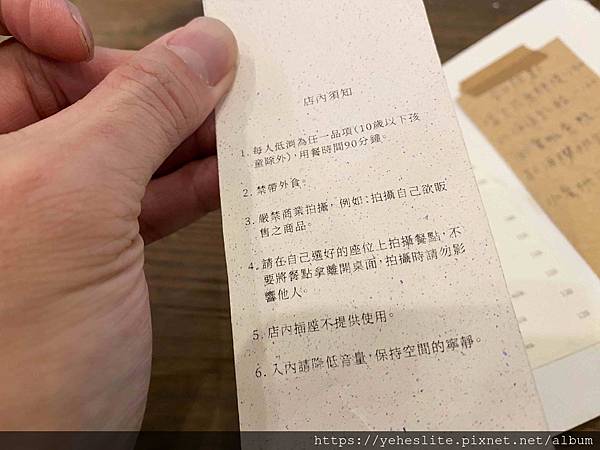 店內須知
1. 每人低消為任一品項(10歲以下孩
童除外)，用餐時間90分鐘。
2. 禁帶外食。
3. 嚴禁商業拍攝，例如:拍攝自己欲販
售之商品。
4. 請在自己選好的座位上拍攝餐點，不
要將餐點拿離開桌面，拍攝時請勿影
響他人。
5. 店內插座不提供使用。
6. 入內請降低音量，保持空間的寧靜。
https://yeheslite.pixnet.net/album